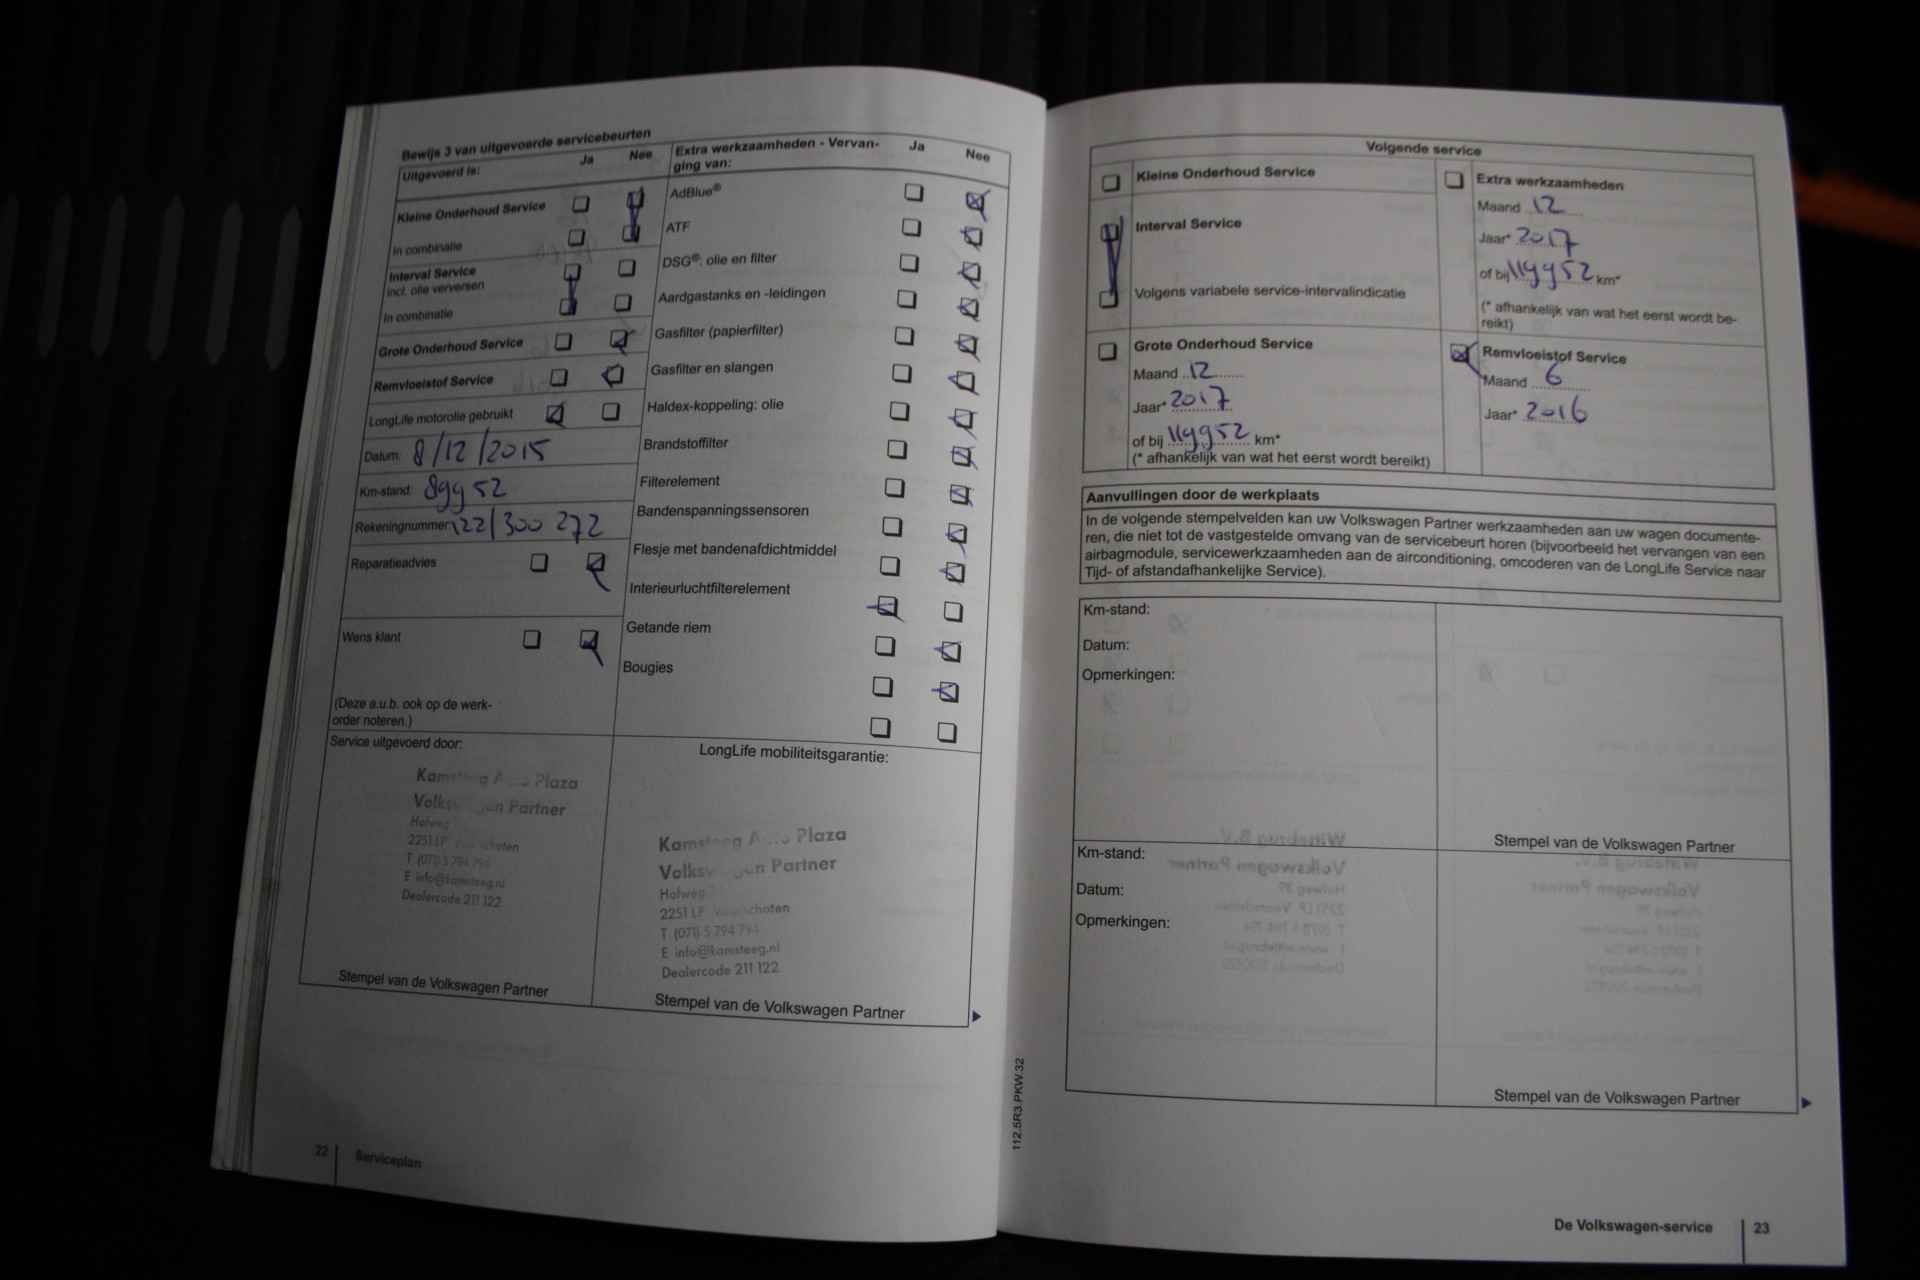 Bewijs 3 van uitgevoerde servicebeurten
Uitgevoerd is:
Ja Nee
Kleine Onderhoud Service
In combinatie
Interval Service
incl. olie verversen
In combinatie
Grote Onderhoud Service
Remvloeistof Service
LongLife motorolie gebruikt
Datum: 8/12/2015
Km-stand: 89952
Rekeningnummer: 122/300 272
Reparatieadvies
Wens klant
(Deze a.u.b. ook op de werk-
order noteren.)
Extra werkzaamheden - Vervan-
ging van:
Ja Nee
AdBlue®
ATF
DSG®: olie en filter
Aardgastanks en -leidingen
Gasfilter (papierfilter)
Gasfilter en slangen
Haldex-koppeling: olie
Brandstoffilter
Filterelement
Bandenspanningssensoren
Flesje met bandenafdichtmiddel
Interieurluchtfilterelement
Getande riem
Bougies
Service uitgevoerd door:
Plaza
Partner
Hofweg
2251 LP
T (071) 5 794 794
E info@kamsteeg.nl
Dealercode 211 122
Stempel van de Volkswagen Partner
LongLife mobiliteitsgarantie:
Plaza
Partner
Hofweg
2251 LP
T (071) 5 794 794
E info@kamsteeg.nl
Dealercode 211 122
Stempel van de Volkswagen Partner
22 Serviceplan
112.5R3.PKW.32
Volgende service
Kleine Onderhoud Service
Interval Service
Volgens variabele service-intervalindicatie
Grote Onderhoud Service
Maand 12
Jaar* 2017
of bij 119952 km*
(* afhankelijk van wat het eerst wordt bereikt)
Extra werkzaamheden
Maand 12
Jaar* 2017
of bij 119952 km*
(* afhankelijk van wat het eerst wordt be-
reikt)
Remvloeistof Service
Maand 6
Jaar* 2016
Aanvullingen door de werkplaats
In de volgende stempelvelden kan uw Volkswagen Partner werkzaamheden aan uw wagen documente-
ren, die niet tot de vastgestelde omvang van de servicebeurt horen (bijvoorbeeld het vervangen van een
airbagmodule, servicewerkzaamheden aan de airconditioning, omcoderen van de LongLife Service naar
Tijd- of afstandafhankelijke Service).
Km-stand:
Datum:
Opmerkingen:
Stempel van de Volkswagen Partner
Km-stand:
Datum:
Opmerkingen:
Stempel van de Volkswagen Partner
De Volkswagen-service 23